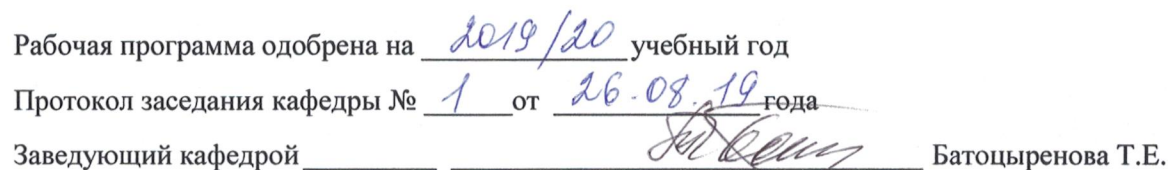 Рабочая программа одобрена на 2019/20 учебный год
Протокол заседания кафедры № 1 от 26.08.19 года
Заведующий кафедрой Батоцыренова Т.Е.